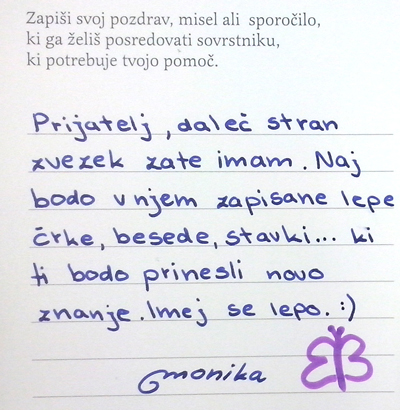 Zapiši svoj pozdrav, misel ali sporočilo,
ki ga želiš posredovati sovrstniku,
ki potrebuje tvojo pomoč.
Prijatelj, daleč stran
zvezek zate imam. Naj
bodo v njem zapisane lepe
črke, besede, stavki... ki
ti bodo prinesli novo
znanje. Imej se lepo. :)
monika